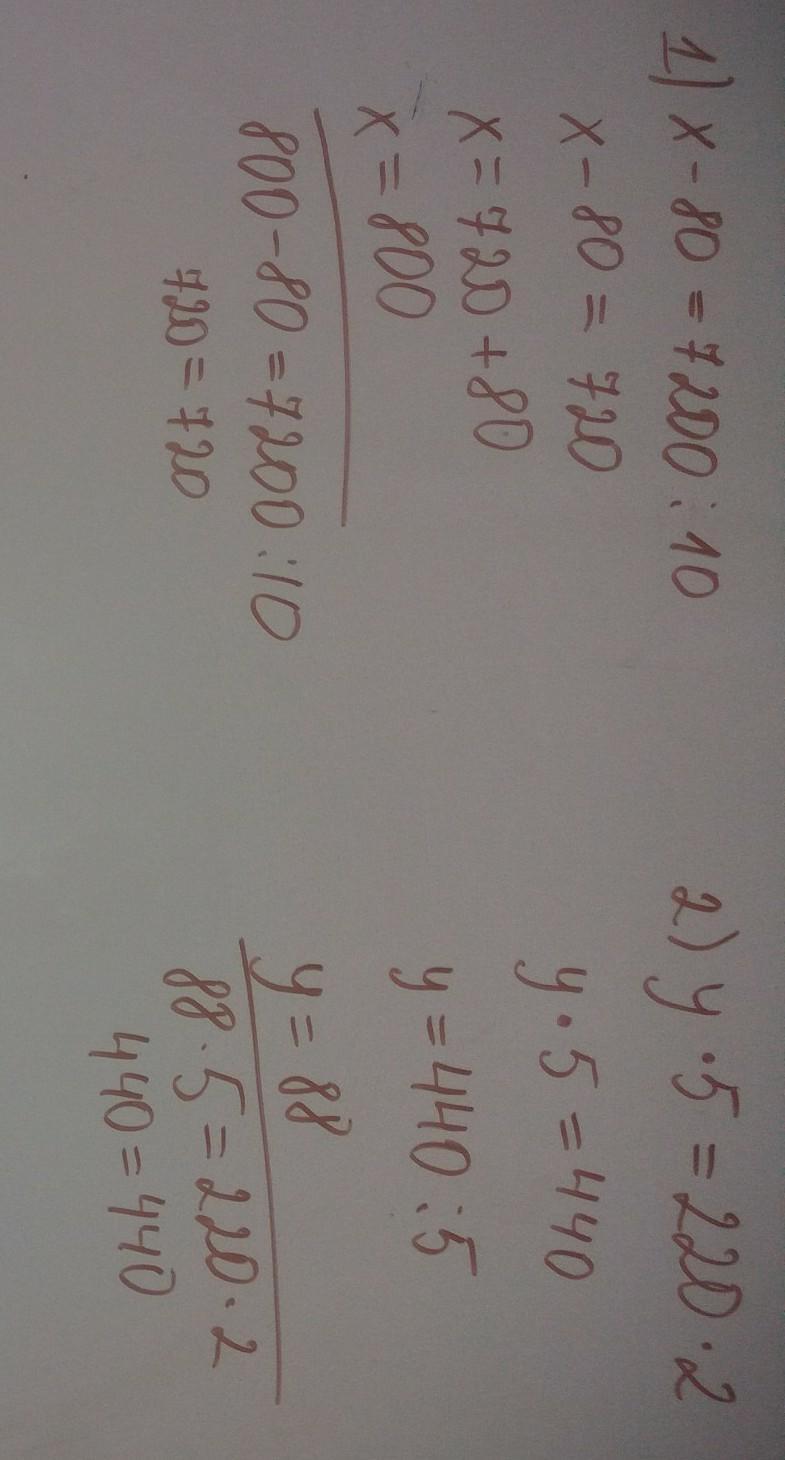 1) x - 80 = 7200 : 10
x - 80 = 720
x = 720 + 80
x = 800
800 - 80 = 7200 : 10
720 = 720
2) y · 5 = 220 · 2
y · 5 = 440
y = 440 : 5
y = 88
88 · 5 = 220 · 2
440 = 440